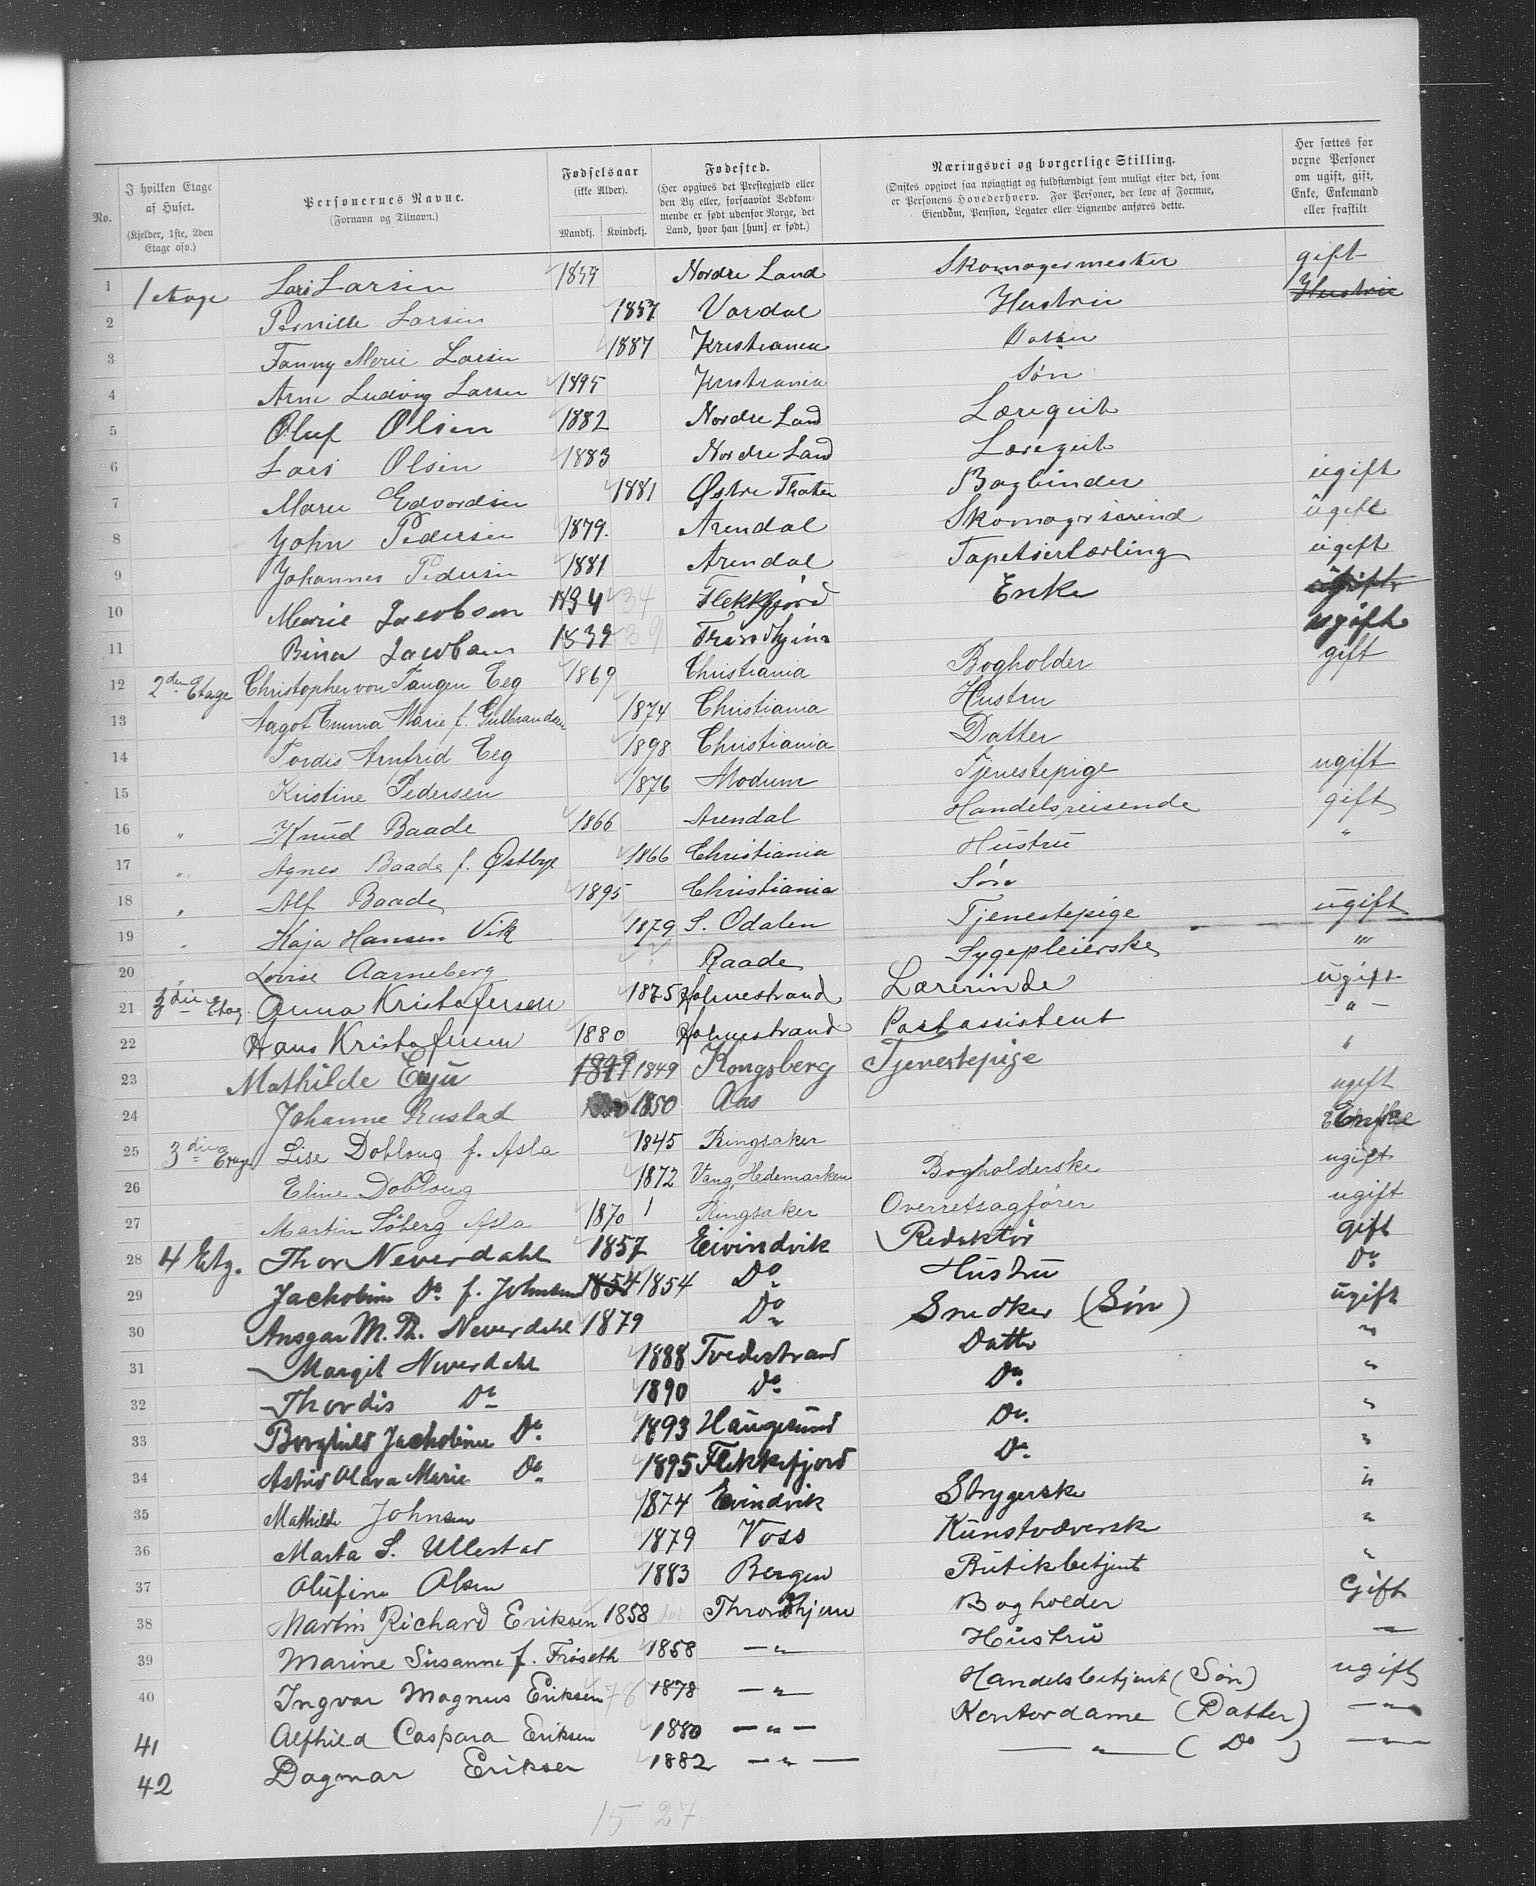 No. I hvilken Etage af Huset. (Kjelder, 1ste, 2den Etage osv.) Personernes Navne. (Fornavn og Tilnavn.) Fødselsaar (ikke Alder). Mandkj. Kvindekj. Fødested. (Her opgives det Prestegjæld eller den By eller, forsaavidt Vedkommende er født udenfor Norge, det Land, hvor han [hun] er født.) Næringsvei og borgerlige Stilling. (Ønskes opgivet saa nøiagtigt og fuldstændigt som muligt efter det, som er Personens Hovederhverv. For Personer, der leve af Formue, Eiendom, Pension, Legater eller Lignende anføres dette. Her sættes for voxne Personer om ugift, gift, Enke, Enkemand eller fraskilt
1 1 etage Lars Larsen Nordre Land Skomagermester gift
2 Pernille Larsen 1857 Vardal Hustru Hustru
3 Fanny Marie Larsen 1887 Kristiania Datter
4 Arne Ludvig Larsen 1895 Kristiania Søn
5 Oluf Olsen 1882 Nordre Land Læregut
6 Lars Olsen 1883 Nordre Land Læregut
7 Marie Edvardsen 1881 Østre Thoten Bogbinder ugift
8 John Pedersen 1879 Arendal Skomagersvend ugift
9 Johannes Pedersen 1881 Arendal Tapetserlærling ugift
10 Marie Jacobsen 1834 34 Flekkfjord Enke ugift
11 Bina Jacobsen 1839 39 Trondhjem ugift
12 2den Etage Christopher von Tangen Eeg 1869 Christiania Bogholder gift
13 Aagot Emma Marie f. Gulbrandsen 1874 Christiania Hustru
14 Tordis Arnfrid Eeg 1898 Christiania Datter
15 Kristine Pedersen 1876 Modum Tjenestepige ugift
16 " Knud Baade 1866 Arendal Handelsreisende gift
17 " Agnes Baade f. Østbye 1866 Christiania Hustru "
18 " Alf Baade 1895 Christiania Søn
19 " Kaja Hansen Vik 1879 S. Odalen Tjenestepige ugift
20 " Lovise Aarneberg Raade Sygepleierske "
21 3die Etag. Anna Kristofersen 1875 Holmestrand Lærerinde ugift
22 Hans Kristofersen 1880 Holmestrand Postassistent - " -
23 Mathilde Enju 1849 1849 Kongsberg Tjenestepige "
24 Johanne Rustad 1850 Aas ugift
25 3die Etage Lise Doblong f. Asla 1845 Ringsaker Enke
26 Eline Doblong 1872 Vang, Hedemarken Bogholderske ugift
27 Martin Söberg Asla 1870 Ringsaker Overretsagfører ugift
28 4 Etg. Thor Neverdahl 1857 Eivindvik Redaktör gift
29 Jackobine Do f. Johnsen 1854 1854 Do Hustru Do
30 Ansgar M. Th. Neverdahl 1879 Do Snedker (Søn) ugift
31 Margit Neverdahl 1888 Tvedestrand Datter "
32 Thordis Do 1890 Do Do "
33 Borghild Jackobine Do 1893 Haugesund Do "
34 Astrid Olava Marie Do 1895 Flekkefjord Do "
35 Mathilde Johnsen 1874 Eivindvik Strygerske "
36 Marta S. Ullestad 1879 Voss Kunstvæversk "
37 Olufine Olsen 1883 Bergen Butikbetjent "
38 Martin Richard Eriksen 1858 Throndhjem Bogholder Gift
39 Marine Susanne f. Frøseth 1858 - " - Hustru - " -
40 Ingvar Magnus Eriksen 78 1878 - " - Handelsbetjent (Søn) ugift
41 Alfhild Caspara Eriksen 1880 - " - Kontordame (Datter) - " -
42 Dagmar Eriksen 1882 - " - - " - (Do) - " -
15 27